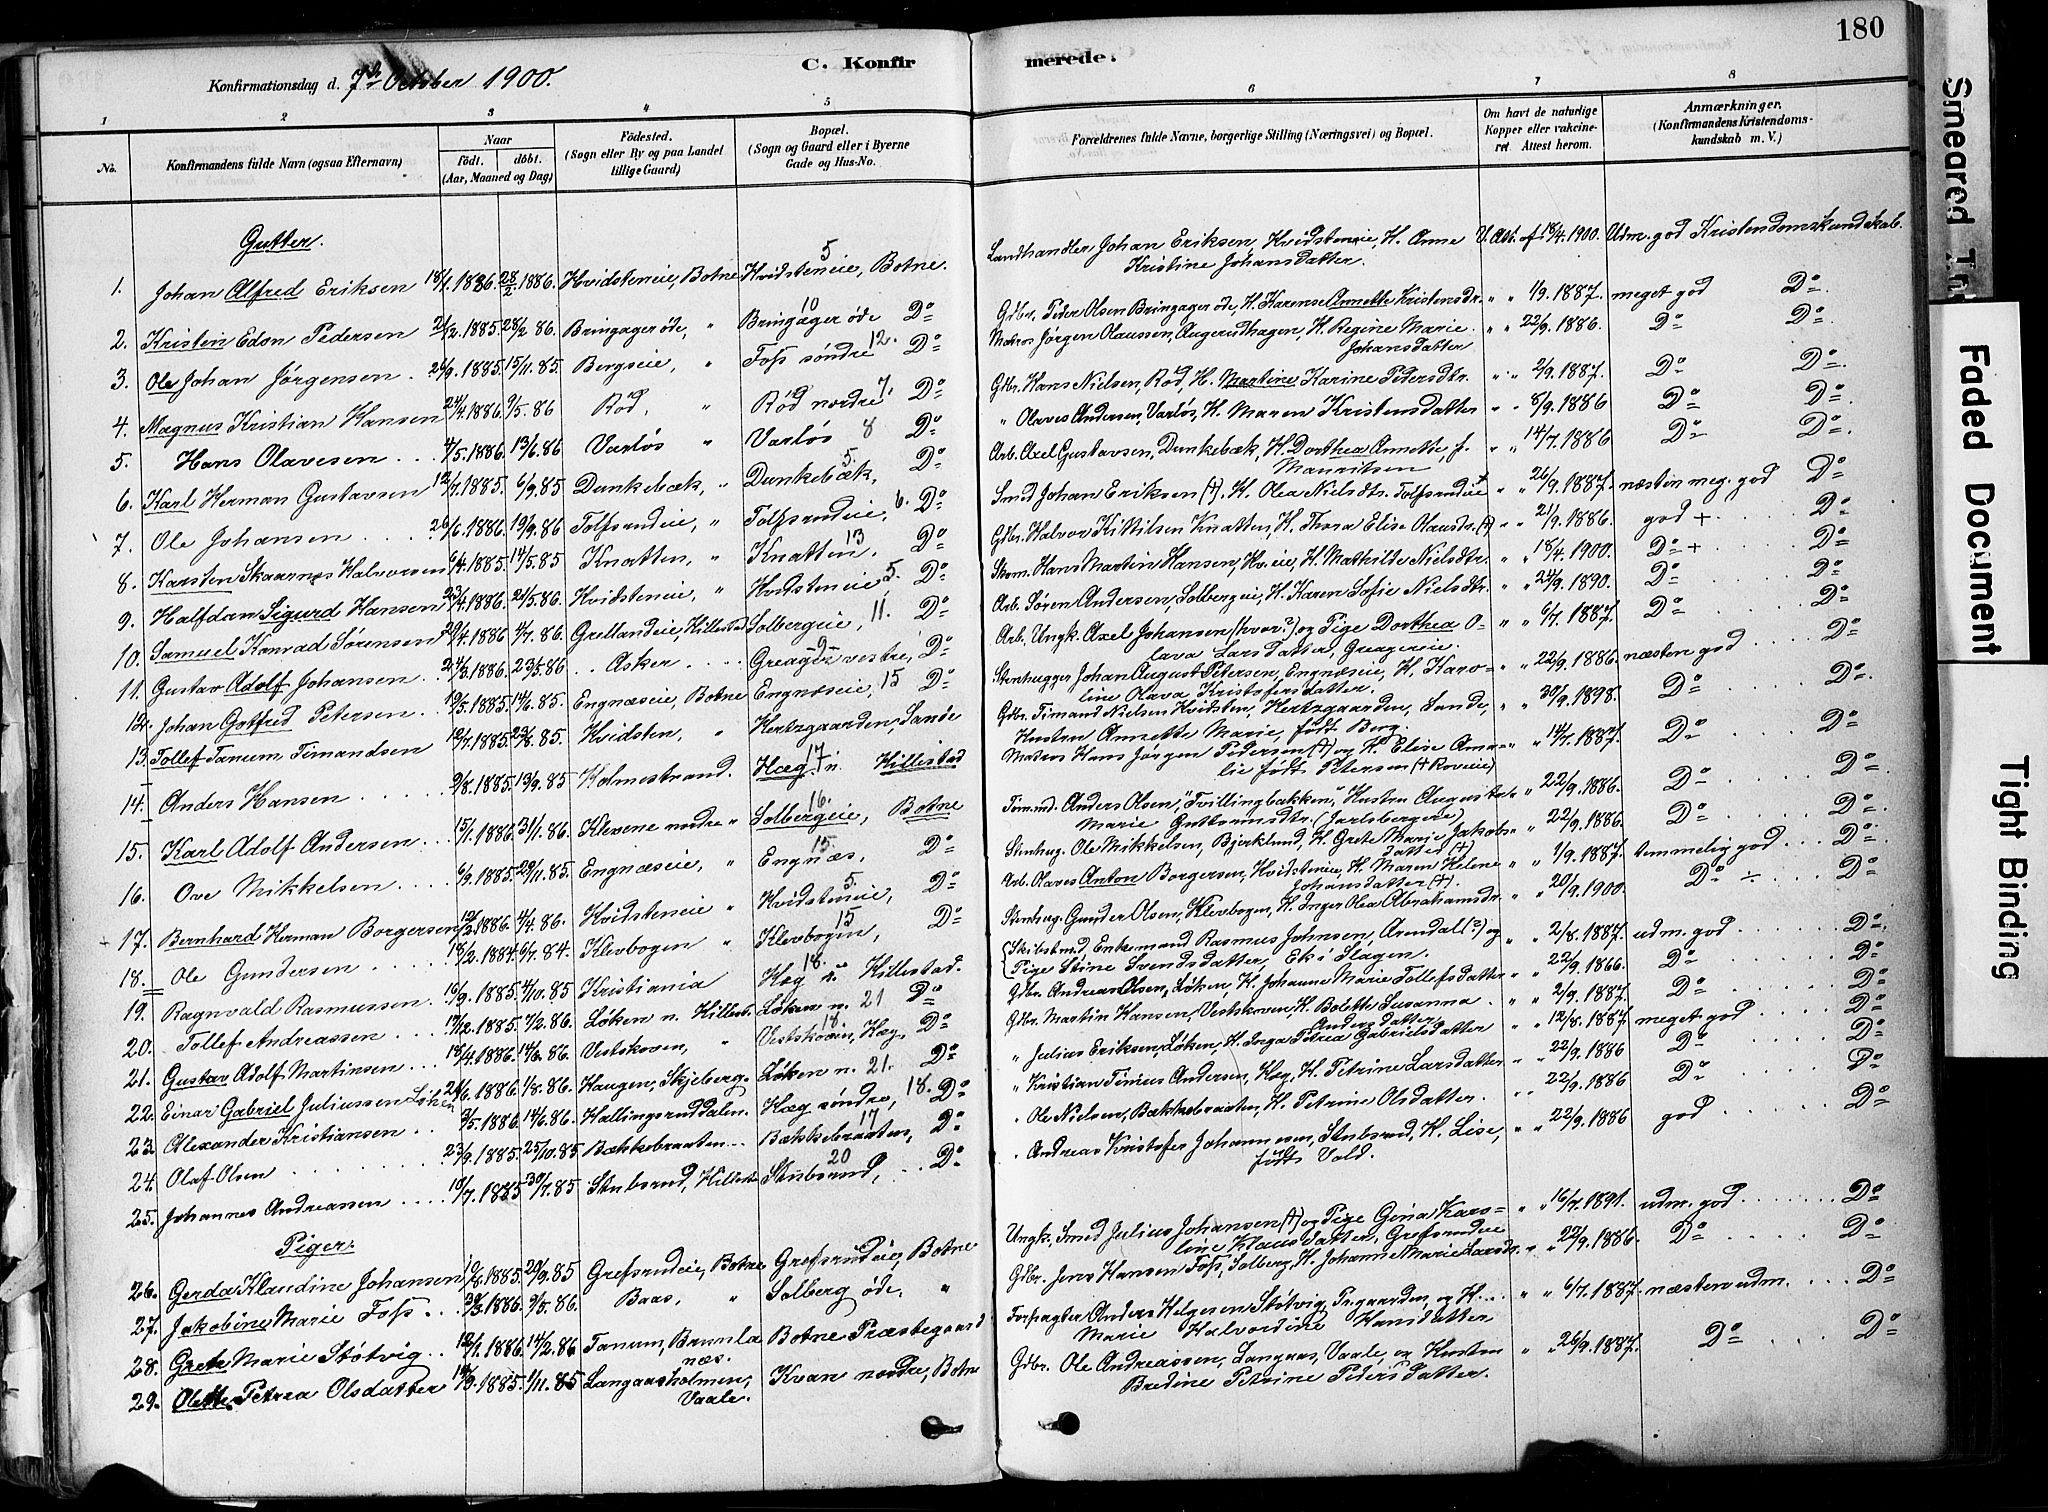 180
C. Konfirmerede.
Konfirmationsdag d. 7de October 1900.
1 2 3 4 5 6 7 8
No.
Konfirmandens fulde Navn (ogsaa Efternavn)
Naar
født. døbt.
(Aar, Maaned og Dag)
Fødested.
(Sogn eller By og paa Landet
tillige Gaard)
Bopæl.
(Sogn og Gaard eller i Byerne
Gade og Hus-No.
Forældrenes fulde Navne, borgerlige Stilling (Næringsvei) og Bopæl.
Om havt de naturlige
Kopper eller vakcine-
ret. Attest herom.
Anmærkninger.
(Konfirmandens Kristendoms-
kundskab m. V.)
Gutter.
1. Johan Alfred Eriksen 18/1.1886. 28/2.1886. Hvidsteneie, Botne Hvidsteneie, 5 Botne. Landhandler Johan Eriksen, Hvidsteneie, H. Anne V. Att. af 18/4.1900. Udm. god Kristendomskundskab.
Kristine Johansdatter.
2. Kristen Edon Pedersen 28/2.86. Bringager øde, " Bringager øde 10 Do Gdbr. Peder Olsen Bringager øde, H. Karense Annette Kristensdr. " " 1/9.1887. meget god Do
3. Ole Johan Jørgensen 15/11.85 Bergseie, " Foss søndre 12. Do Matros Jørgen Olaussen, Augerudhagen, H. Regine Marie " " 22/9.1886. Do Do
Johansdatter
4. Magnus Kristian Hansen 24/4.1886. 9/5.86 Rød, " Rød nordre 7. Do Gdbr. Hans Nielsen, Rød, H. Martine Karine Pedersdtr. " " 2/9.1887. Do Do
5. Hans Olavesen 4/5.1886. 13/6.86 Varløs " Varløs 8 Do " Olaves Andersen, Varløs, H. Maren Kristensdatter " " 8/9.1886 Do Do
6. Karl Herman Gustavsen 12/7.1885. 6/9.85 Dunkebæk, " Dunkebæk, 5. Do Arb. Axel Gustavsen, Dunkebæk, H. Dorthea Annette, f. " " 14/7.1886 Do Do
Mauritsen
7. Ole Johansen 26/6.1886. 19/9.86 Tolfsrudeie, " Tolfsrudeie, 6. Do Smed Johan Eriksen (+). H. Olea Nielsdtr. Tolfsrudeie " " 26/9.1887. næsten meg. god Do
8. Karsten Skaarnes Halvorsen 6/4.1885. 14/5.85 Knatten, " Knatten, 13 Do Gdbr. Halvor Kittilsen Knatten, H. Thora Elise Olausdr. (+) " " 21/9.1886. god + Do
9. Halfdan Sigurd Hansen 23/4.1886. 24/5.86. Hvidsteneie, " Hvidsteneie, 5. Do Skom. Hans Martin Hansen, Hv.eie, H. Mathilde Nielsdtr. " " 18/4.1900. Do + Do
10. Samuel Konrad Sørensen 29/4.1886 4/7.86. Grellandeie, Hillestad Solbergeie, 11. Do Arb. Søren Andersen, Solbergeie, H. Karen Sofie Nielsdtr. " " 24/9.1890. Do Do
11. Gustav Adolf Johansen 24/3.1886. 23/5.86 Asker Greager vestre, 9 Do Arb. Ungk. Axel Johansen (hvor?) og Pige Dorthea O- " " 6/7.1887. Do Do
lava Larsdatter, Greagereie.
12. Johan Gotfred Petersen 19/5.1885. 14/6.85. Engnæseie, Botne Engnæseie, 15 Do Stenhugger Johan August Petersen, Engnæseie, H. Karo- " " 22/9.1886. næsten god Do
line Olava Kristofersdatter.
13. Tollef Tanum Timandsen 12/7.1885. 23/8.85. Hvidsten, " Hertzgaarden, Sande Gdbr. Timand Nielsen Hvidsten, Hertzgaarden, Sande, " " 30/9.1898. Do Do
Hustru Annette Marie, født Berg
14. Anders Hansen 9/8.1885. 13/9.85 Holmestrand. Hæg n. 17 Hillestad Matros Hans Jørgen Pedersen (+) og H. Elise Ama- " " 14/7.1887. Do Do
lie født Petersen (+ Roveie)
15. Karl Adolf Andersen 15/1.1886. 31/1.86. Klevene nordre " Solbergeie, 16. Botne Tømmd. Anders Olsen, "Tvillingbakken," Hustru Augusta " 22/9.1886. Do Do
Marie Guttormsdtr. (Jarlsbergeie)
16. Ove Mikkelsen 6/9.1885. 29/11.85. Engnæseie, " Engnæs, 15. Do Stenhug. Ole Mikkelsen, Bjerklund, H. Grete Marie Jakobs- " 22/9.1886. Do Do
datter (+)
17. Bernhard Herman Borgersen 12/2.1886. 4/4.86. Hvidsteneie " Hvidsteneie, 5. Do Arb. Olaves Anton Borgersen, Hvidsteneie, H. Maren Helene " " 1/9.1887. temmelig god Do
Johansdatter (+).
18. Ole Gundersen 18/2.1884. 6/7.84. Klevbogen " Klevbogen, 15 Do Stenhug. Gunder Olsen, Klevbogen, H. Inger Olea Abrahamsdr. " " 20/9.1900. Do ÷ Do
19. Ragnvald Rasmussen 16/9.1885. 4/10.85 Kristiania Hæg n. 18. Hillestad. Skibstmd, Enkemand Rasmus Johnsen, Arendal (?) og " " 2/8.1887. udm. god Do
Pige Stine Svendsdatter, Ek i Slagen.
20. Tollef Andreassen 17/12.1885. 7/2.86. Løken n. Hillest. Løken n. 21 Do Gdbr. Andreas Olsen, Løken, H. Johanne Marie Tollefsdatter " " 22/9.1866. Do Do
21. Gustav Adolf Martinsen 18/4.1886. 14/6.86. Vestskoven, " Vestskoven, Hæg, 18. Do Gdbr. Martin Hansen, Vestskoven, H. Bolette Susanna " " 2/9.1887. Do Do
Andersdatter
22. Einar Gabriel Juliussen Løken 24/6.1886 1/8.86. Haugen, Skjeberg. Løken n. 21. Do " Julius Eriksen, Løken, H. Inga Petrea Gabrielsdatter " " 12/8.1887. meget god Do
23. Alexander Kristiansen 3/5.1886. 14/6.86. Hallingsruddalen. Hæg søndre, 18. Do " Kristian Tinius Andersen, Hæg, H. Petrine Larsdatter " " 22/9.1886 Do Do
24. Olaf Olsen 23/9.1885. 25/10.85 Bækkebraaten Bækkebraaten, 17 Do " Ole Nielsen, Bækkebraaten, H. Petrine Olsdatter. " " 22/9.1886 Do Do
25. Johannes Andreassen 10/7.1885 30/7.85 Stubsrud, Hillest. Stubsrud, 20 Do " Andreas Kristofer Johannesen, Stubsrud, H. Lise, " " 22/9.1886 god Do
født Vold.
Piger.
26. Gerda Klaudine Johansen 10/8.1885. 20/9.85 Grefsrudeie, Botne Grefsrudeie, Botne Ungk. Smed Julius Johansen (+) og Pige Gina Karo- " 16/7.1891. udm. god Do
line Klausdatter, Grefsrudeie
27. Jakobine Marie Foss 9/5.86. Baas, " Solberg øde, " Gdbr. Jens Hansen Foss, Solberg, H. Johanne Marie Larsdr. " " 22/9.1886. Do Do
28. Grete Marie Støtvig 12/1.1886. 14/2.86 Tanum, Brunla Botne Præstegaard Forpagter Anders Helgesen Støtvig, Pr.gaarden, og H. " " 6/7.1887. næsten udm. Do
næs. Marie Halvordine Hansdatter
29. Olette Petrea Olsdatter 14/9.1885. 1/11.85 Langaasholmen, Kvan nordre, Botne Gdbr. Ole Andreassen, Langaas, Vaale, og Hustru " 26/9.1887. Do Do
Vaale. Bredine Petrine Pedersdatter.
Smeared
Faded Document
Tight Binding